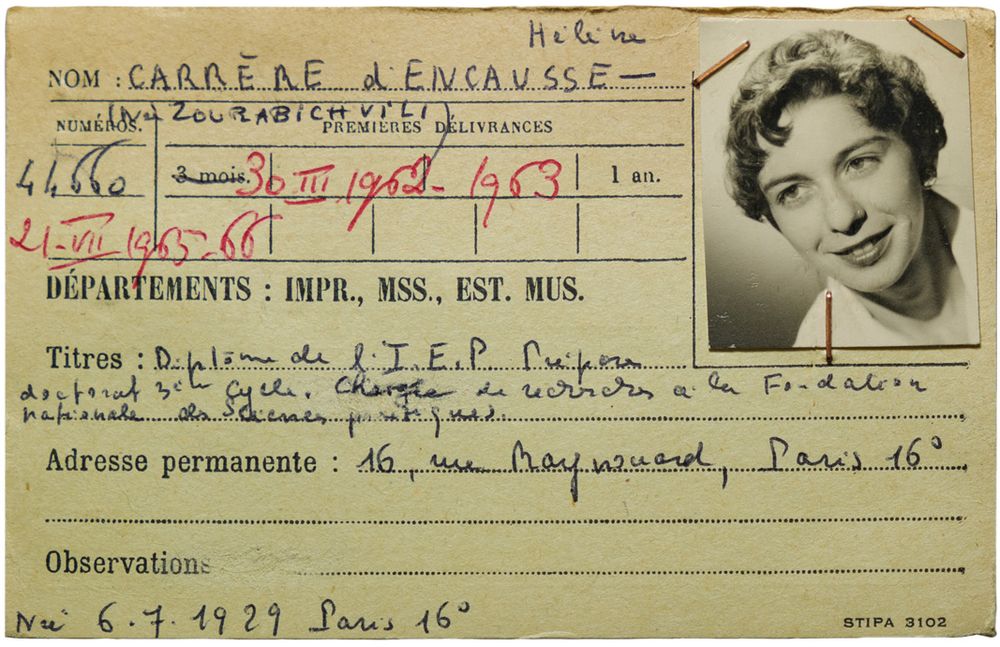 Hélène
NOM : CARRÈRE d'ENCAUSSE —
(Née ZOURABICHVILI)
NUMÉROS. PREMIÈRES DÉLIVRANCES
44660 3 mois. 30 III 1962 - 1963 1 an.
21-VII 1965-66
DÉPARTEMENTS : IMPR., MSS., EST. MUS.
Titres : Diplôme de l'I.E.P Prépare
doctorat 3ème Cycle. Chargée de recherches à la Fondation
nationale des Sciences politiques.
Adresse permanente : 16, rue Raynouard, Paris 16°
Observations
Née 6.7.1929 Paris 16°
STIPA 3102